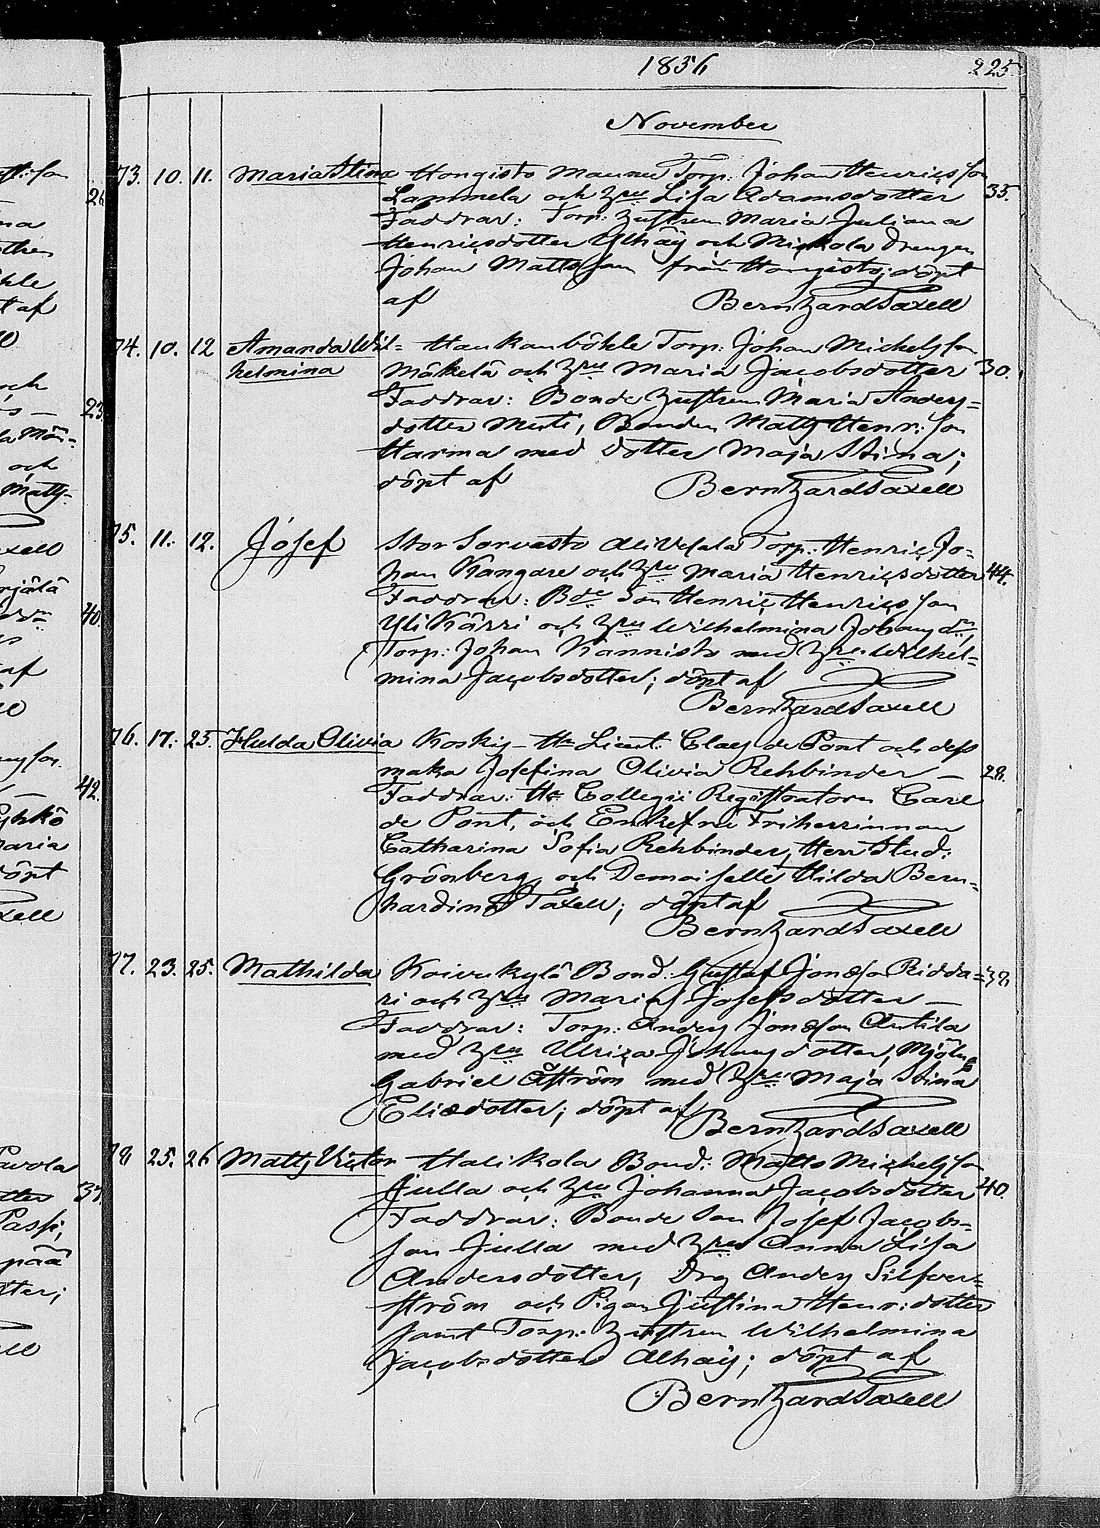 1856 225.
November
73. 10. 11. Maria Stina Hongisto Maunu Torp. Johan Henricsson
Lammela och Hru Lisa Adamsdotter 35.
Faddrar: Torp. Hustrun Maria Juliana
Henricsdotter Ylhäij och Mickola Drengen
Johan Mattsson från Hongisto; döpt
af Bernhard Saxell
74. 10. 12 Amanda Wil- Haukanböhle Torp. Johan Michelsson
helmina Mäkelä och Hru Maria Jacobsdotter 30.
Faddrar: Bonde Hustrun Maria Anders-
dotter Muti, Bonden Matts Henr:son
Harma med dotter Maja Stina;
döpt af Bernhard Saxell
75. 11. 12. Josef Stor Sorvasto Ali Vesala Torp. Henric Jo-
han Kangare och Hru Maria Henricsdotter 44.
Faddrar: Bde Son Henric Henricsson
Yli Kärri och Hru Wilhelmina Johansdr,
Torp: Johan Kannisto med Hru Wilhel-
mina Jacobsdotter; döpt af
Bernhard Saxell
76. 17. 25. Hulda Olivia Koskis Hr Lieut. Claes de Pont och dess
maka Josefina Olivia Rehbinder — 28.
Faddrar: Hr Collegii Registratorn Carl
de Pont, och Enkefru Friherrinnan
Catharina Sofia Rehbinder, Herr Stud:
Grönberg och Demoiselle Hilda Bern-
hardina Saxell; döpt af
Bernhard Saxell
77. 23. 25. Mathilda Koivukylä Bond: Gustaf Jonasson Ridda-
ri och Hru Maria Josefsdotter —
Faddrar: Torp: Anders Jonasson Antila
med Hru Ulrica Johansdotter, Mjöln.
Gabriel Åström med Hru Maja Stina
Eliædotter; döpt af
Bernhard Saxell
78 25. 26 Matts Victor Halikola Bond: Matts Michelsson
Julla och Hru Johanna Jacobsdotter 40.
Faddrar: Bonde Son Josef Jacobs-
son Julla med Hru Anna Lisa
Andersdotter, Drg Anders Silfver-
ström och Pigan Justina Henr:dotter
samt Torp: Hustrun Wilhelmina
Jacobsdotter Alhäij; döpt af
Bernhard Saxell